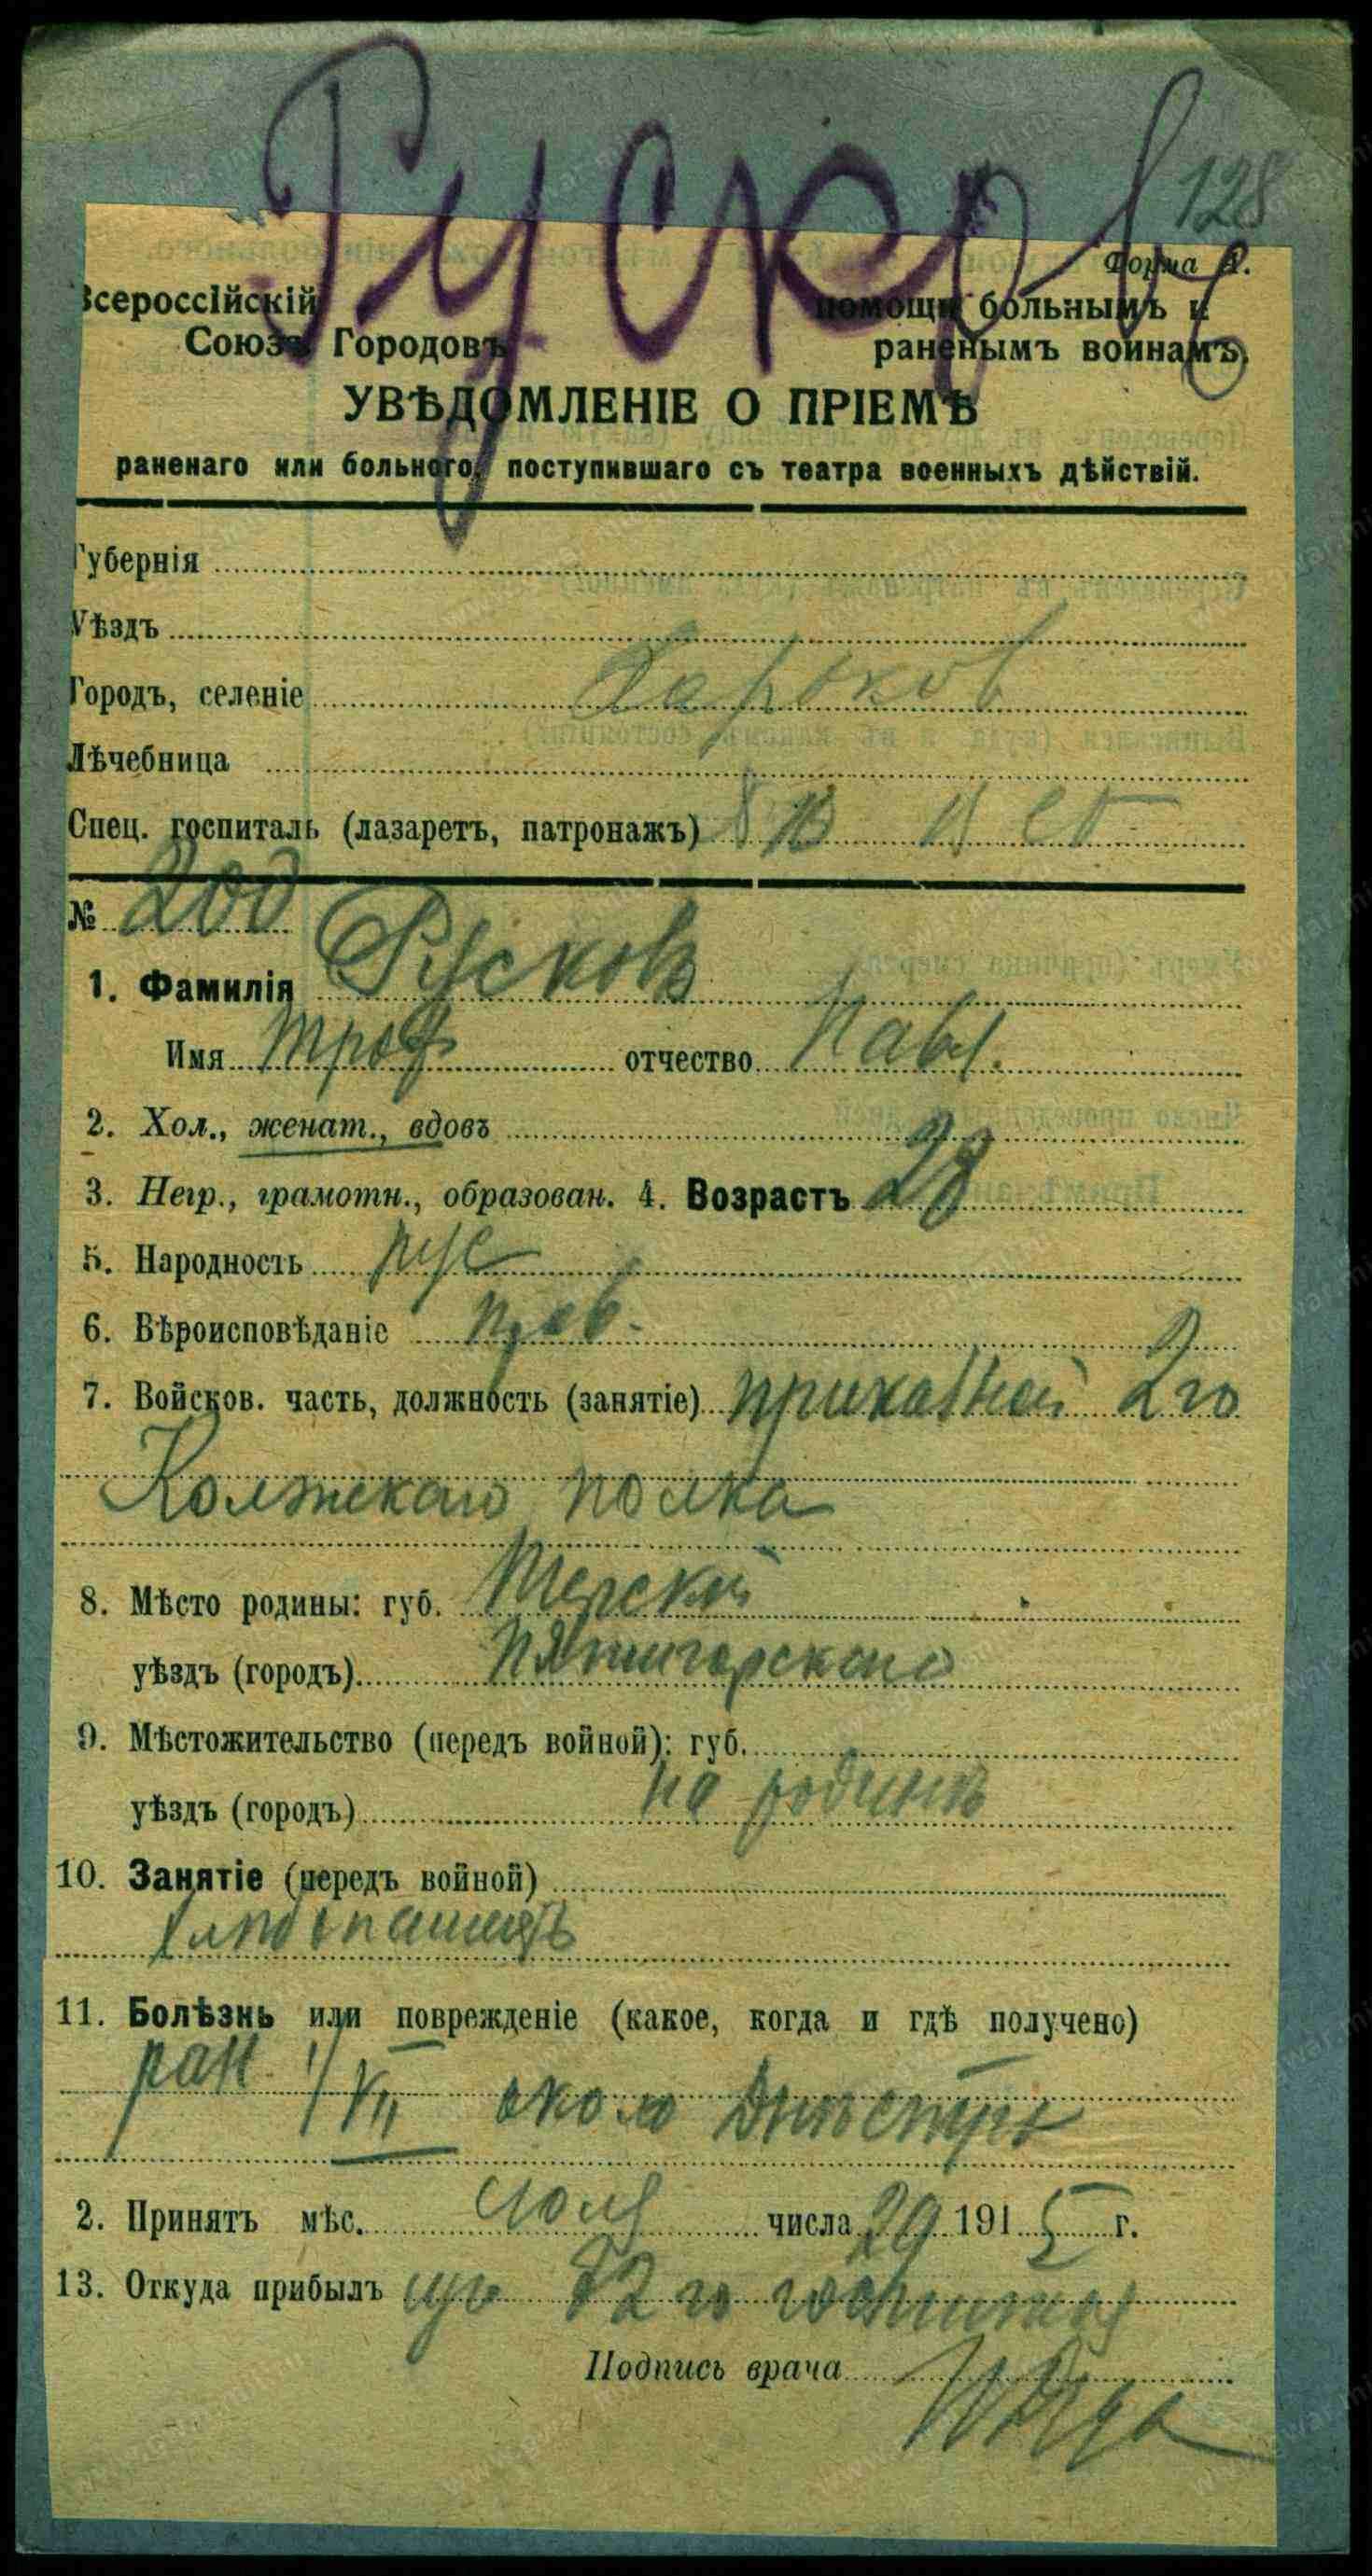 Русковъ
128
Форма А.
Всероссійскій помощи больнымъ и
Союзъ Городовъ раненымъ воинамъ.
УВѢДОМЛЕНІЕ О ПРІЕМѢ
раненаго или больного, поступившаго съ театра военныхъ дѣйствій.
Губернія
Уѣздъ
Городъ, селеніе Харьков
Лѣчебница
Спец. госпиталь (лазаретъ, патронажъ)
№ 200
1. Фамилія Русковъ
Имя Троф отчество Павл.
2. Хол., женат., вдовъ
3. Негр., грамотн., образован. 4. Возрастъ 28
5. Народность рус
6. Вѣроисповѣданіе прав.
7. Войсков. часть, должность (занятіе) приказной 2го
полка
8. Мѣсто родины: губ. Терской
уѣздъ (городъ) Пятигорскаго
9. Мѣстожительство (передъ войной): губ.
уѣздъ (городъ) на родинѣ
10. Занятіе (передъ войной)
хлебопашецъ
11. Болѣзнь или поврежденіе (какое, когда и гдѣ получено)
ран. 1/VII около Днѣстра
2. Принятъ мѣс. июля числа 29 1915 г.
13. Откуда прибылъ 2го госпиталя
Подпись врача